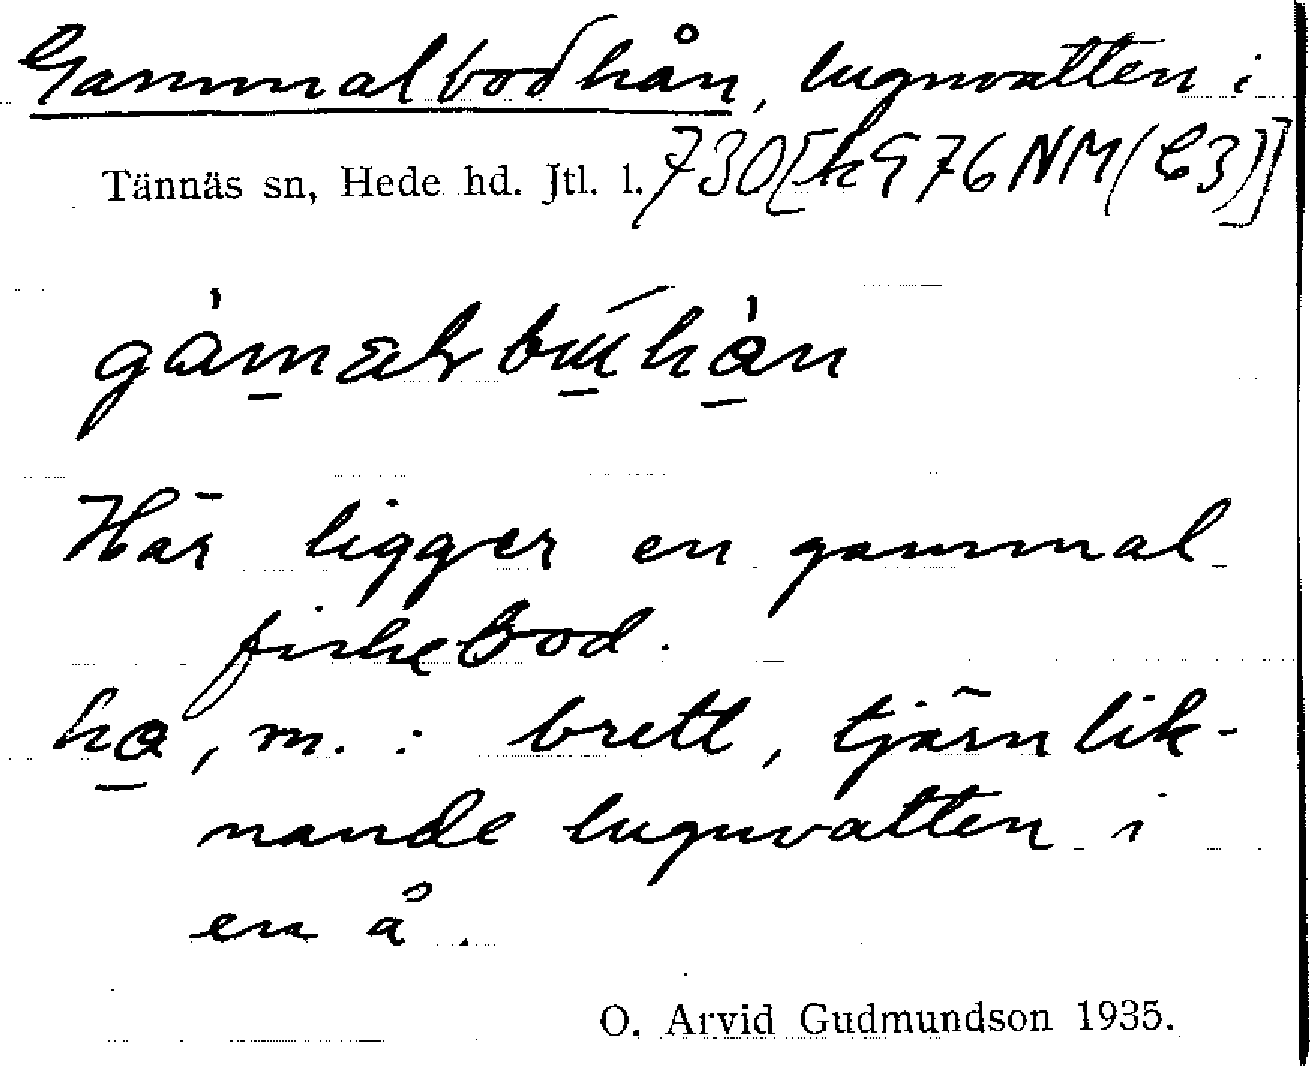 Gammalbodhån, lugnvatten i
Tännäs sn, Hede hd. Jtl. l. 730[k976NM(C3)]
Här ligger en gammal
fiskebod.
ha̲, m. : brett, tjärnlik-
nande lugnvatten i
en å.
O. Arvid Gudmundson 1935.